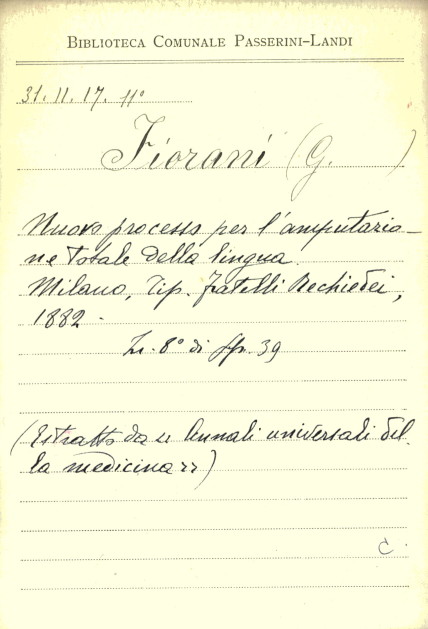 BIBLIOTECA COMUNALE PASSERINI-LANDI
31. II. 17. 11°
Fiorani (G. )
Nuovo processo per l'amputazio-
ne totale della lingua.
Milano, Tip. fratelli Rechiedei,
1882.
In-8° di pp. 39
(Estratto da "Annali universali del-
la medicina")
C.